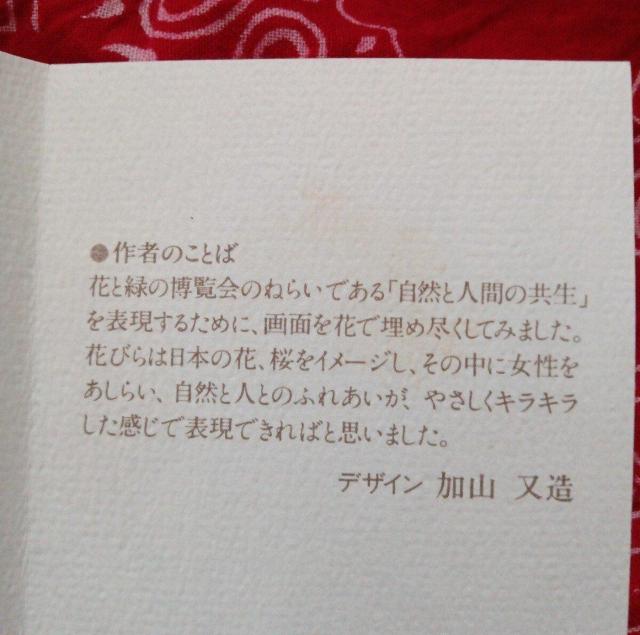 ●作者のことば
花と緑の博覧会のねらいである「自然と人間の共生」
を表現するために、画面を花で埋め尽くしてみました。
花びらは日本の花、桜をイメージし、その中に女性を
あしらい、自然と人とのふれあいが、やさしくキラキラ
した感じで表現できればと思いました。
デザイン 加山 又造